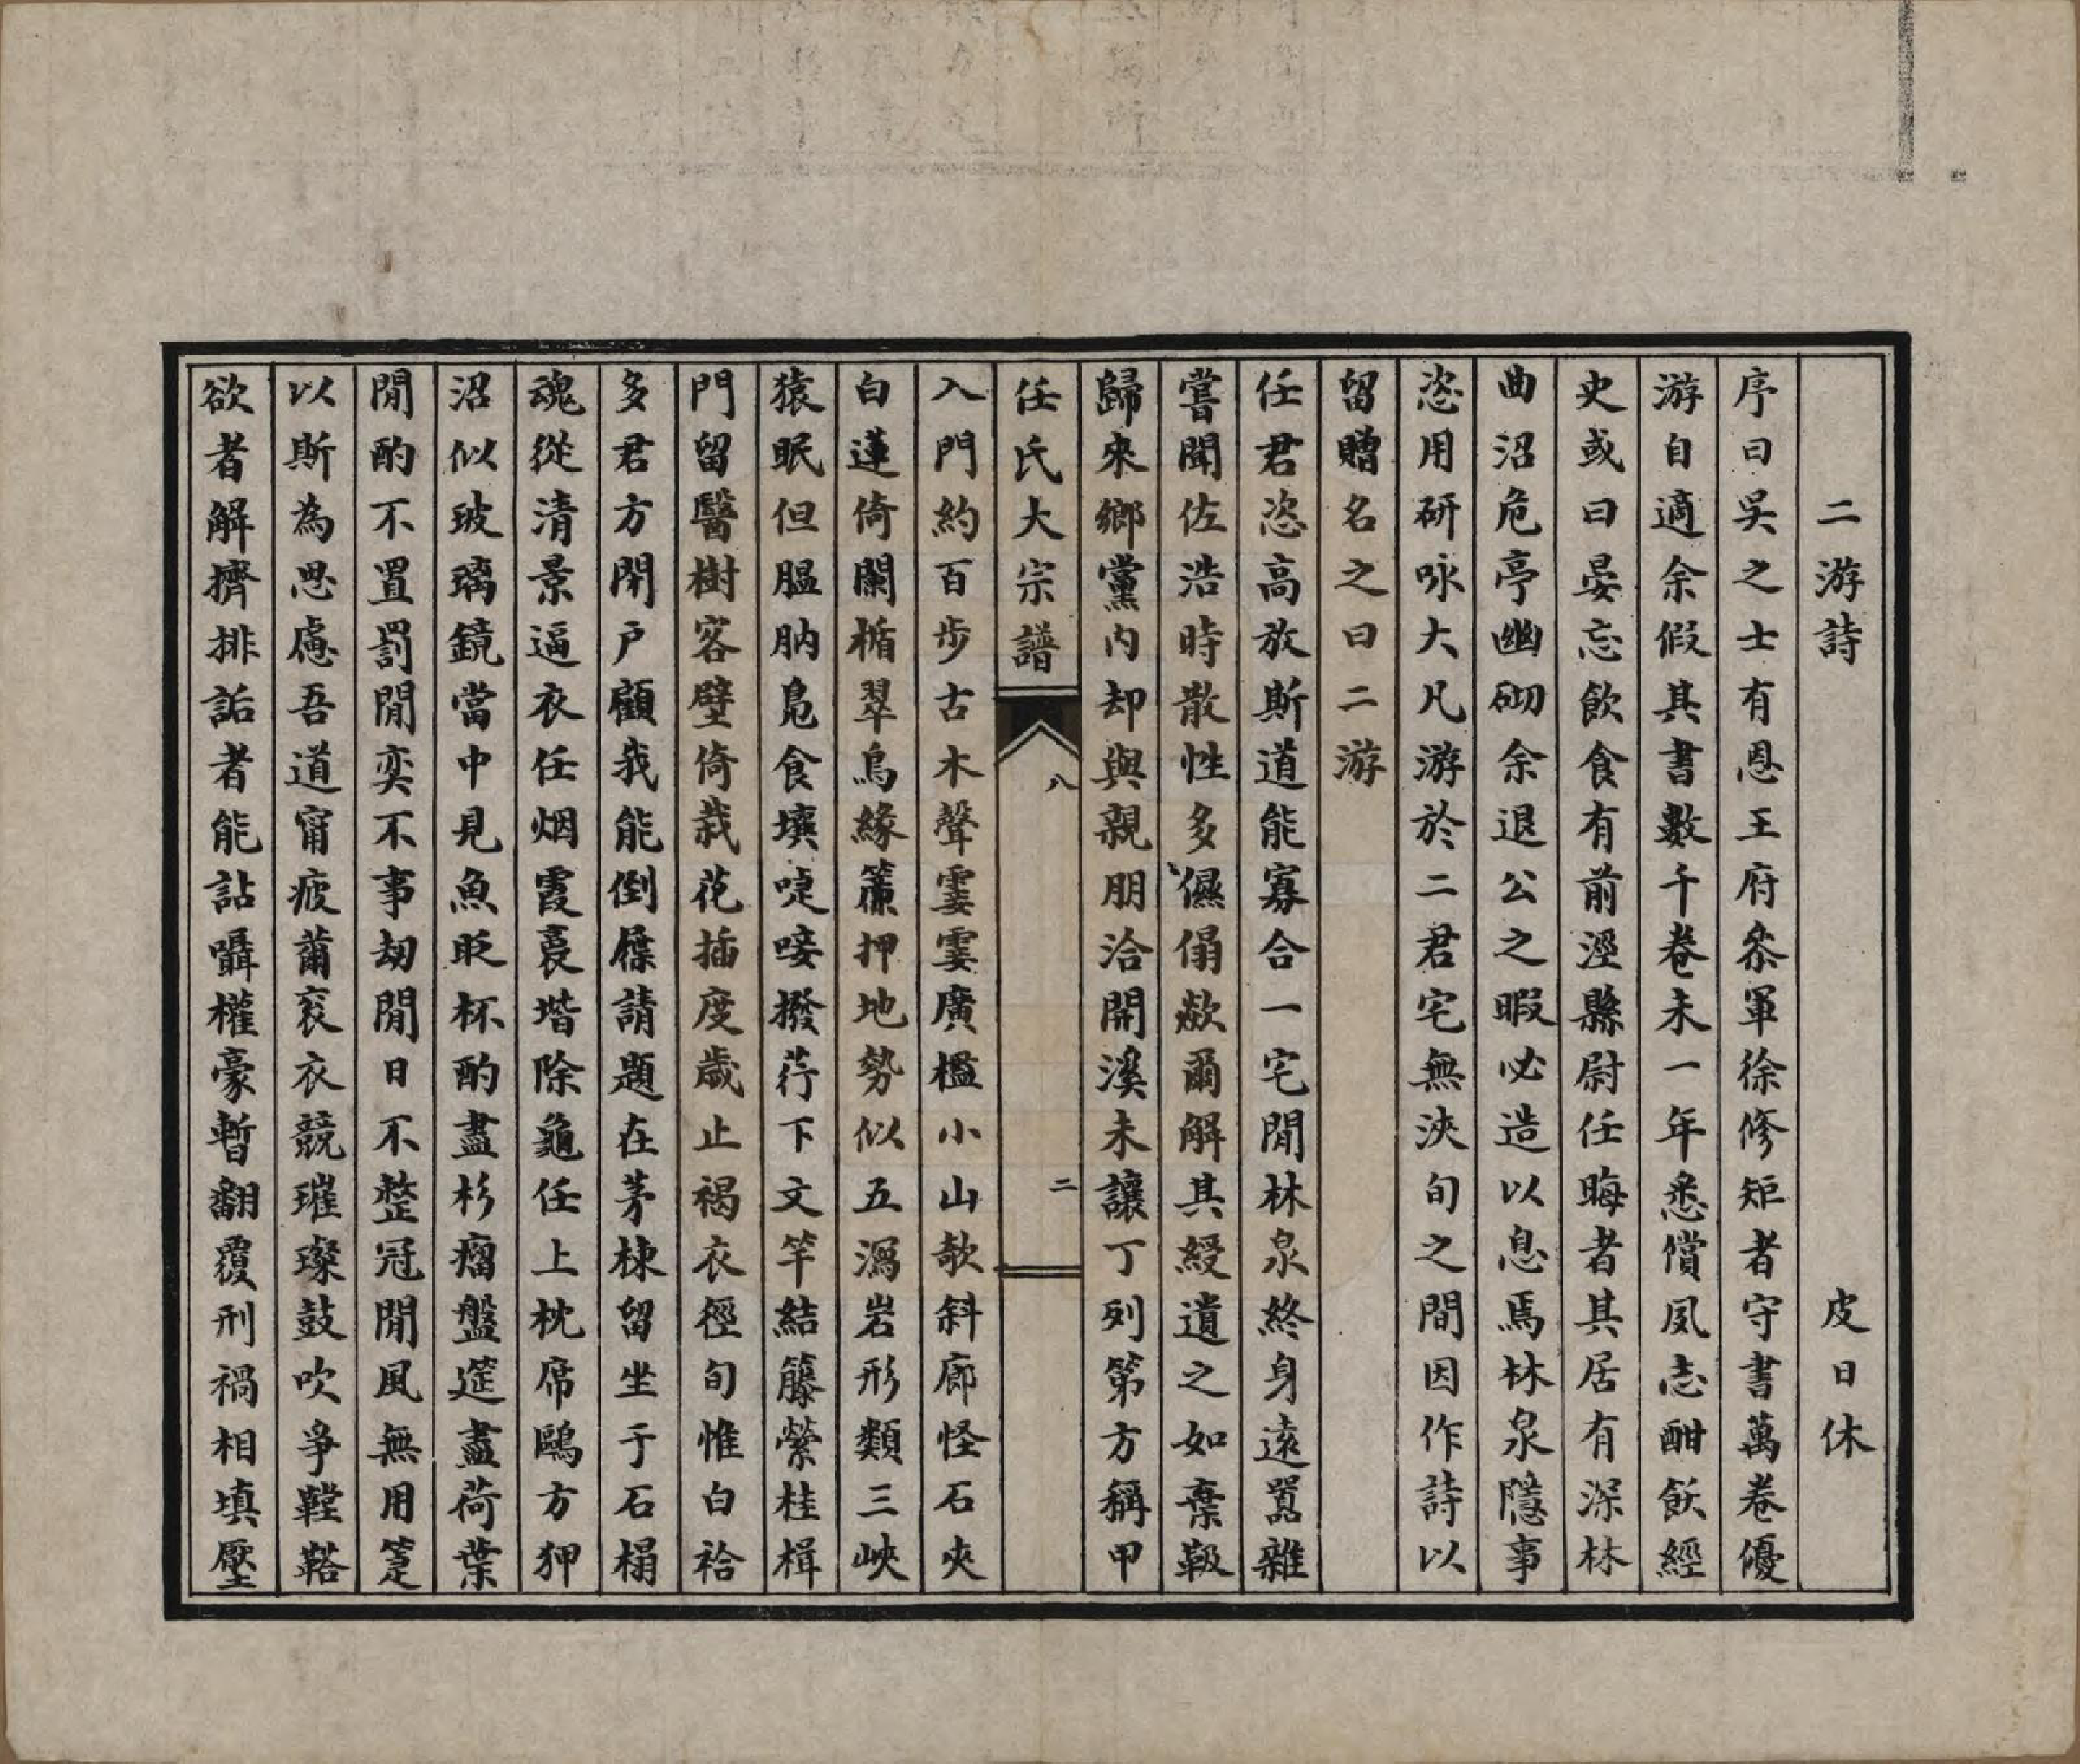 二游詩 皮日休
序曰吳之士有恩王府叅軍徐修矩者守書萬卷優
游自適余假其書數千卷未一年悉償夙志酣飫經
史或日晏忘飲食有前涇縣尉任晦者其居有深林
曲沼危亭幽砌余退公之暇必造以息焉林泉隱事
恣用研咏大凡游於二君宅無浹旬之間因作詩以
留贈名之曰二游
任君恣高放斯道能寡合一宅閒林泉終身遠嚣雜
嘗聞佐浩時散性多儑㒓欻爾解其綬遺之如棄靸
歸來鄉黨內却與親朋洽開溪未讓丁列第方稱甲
任氏大宗譜 八 二
入門約百步古木聲霎霎廣檻小山欹斜廊怪石夾
白蓮倚闌楯翠鳥緣簾押地勢似五瀉岩形類三峽
猿眠但腽肭鳧食壙啑唼撥荇下文竿結籐縈桂楫
門留醫樹客壁倚栽花插度歲止褐衣徑旬惟白袷
多君方閉戶顧我能倒屧請題在茅棟留坐于石榻
魂從清景遛衣任烟霞裛堦除龜任上枕席鷗方狎
沼似玻璃鏡當中見魚眨杯酌盡杉瘤盤筵盡荷葉
閒酌不置罰閒奕不事劫閒日不整冠閒風無用箑
以斯為思慮吾道甯疲薾衮衣競璀璨鼓吹爭鞺鞳
欲者解擠排詬者能詀囁權豪暫翻覆刑禍相填壓